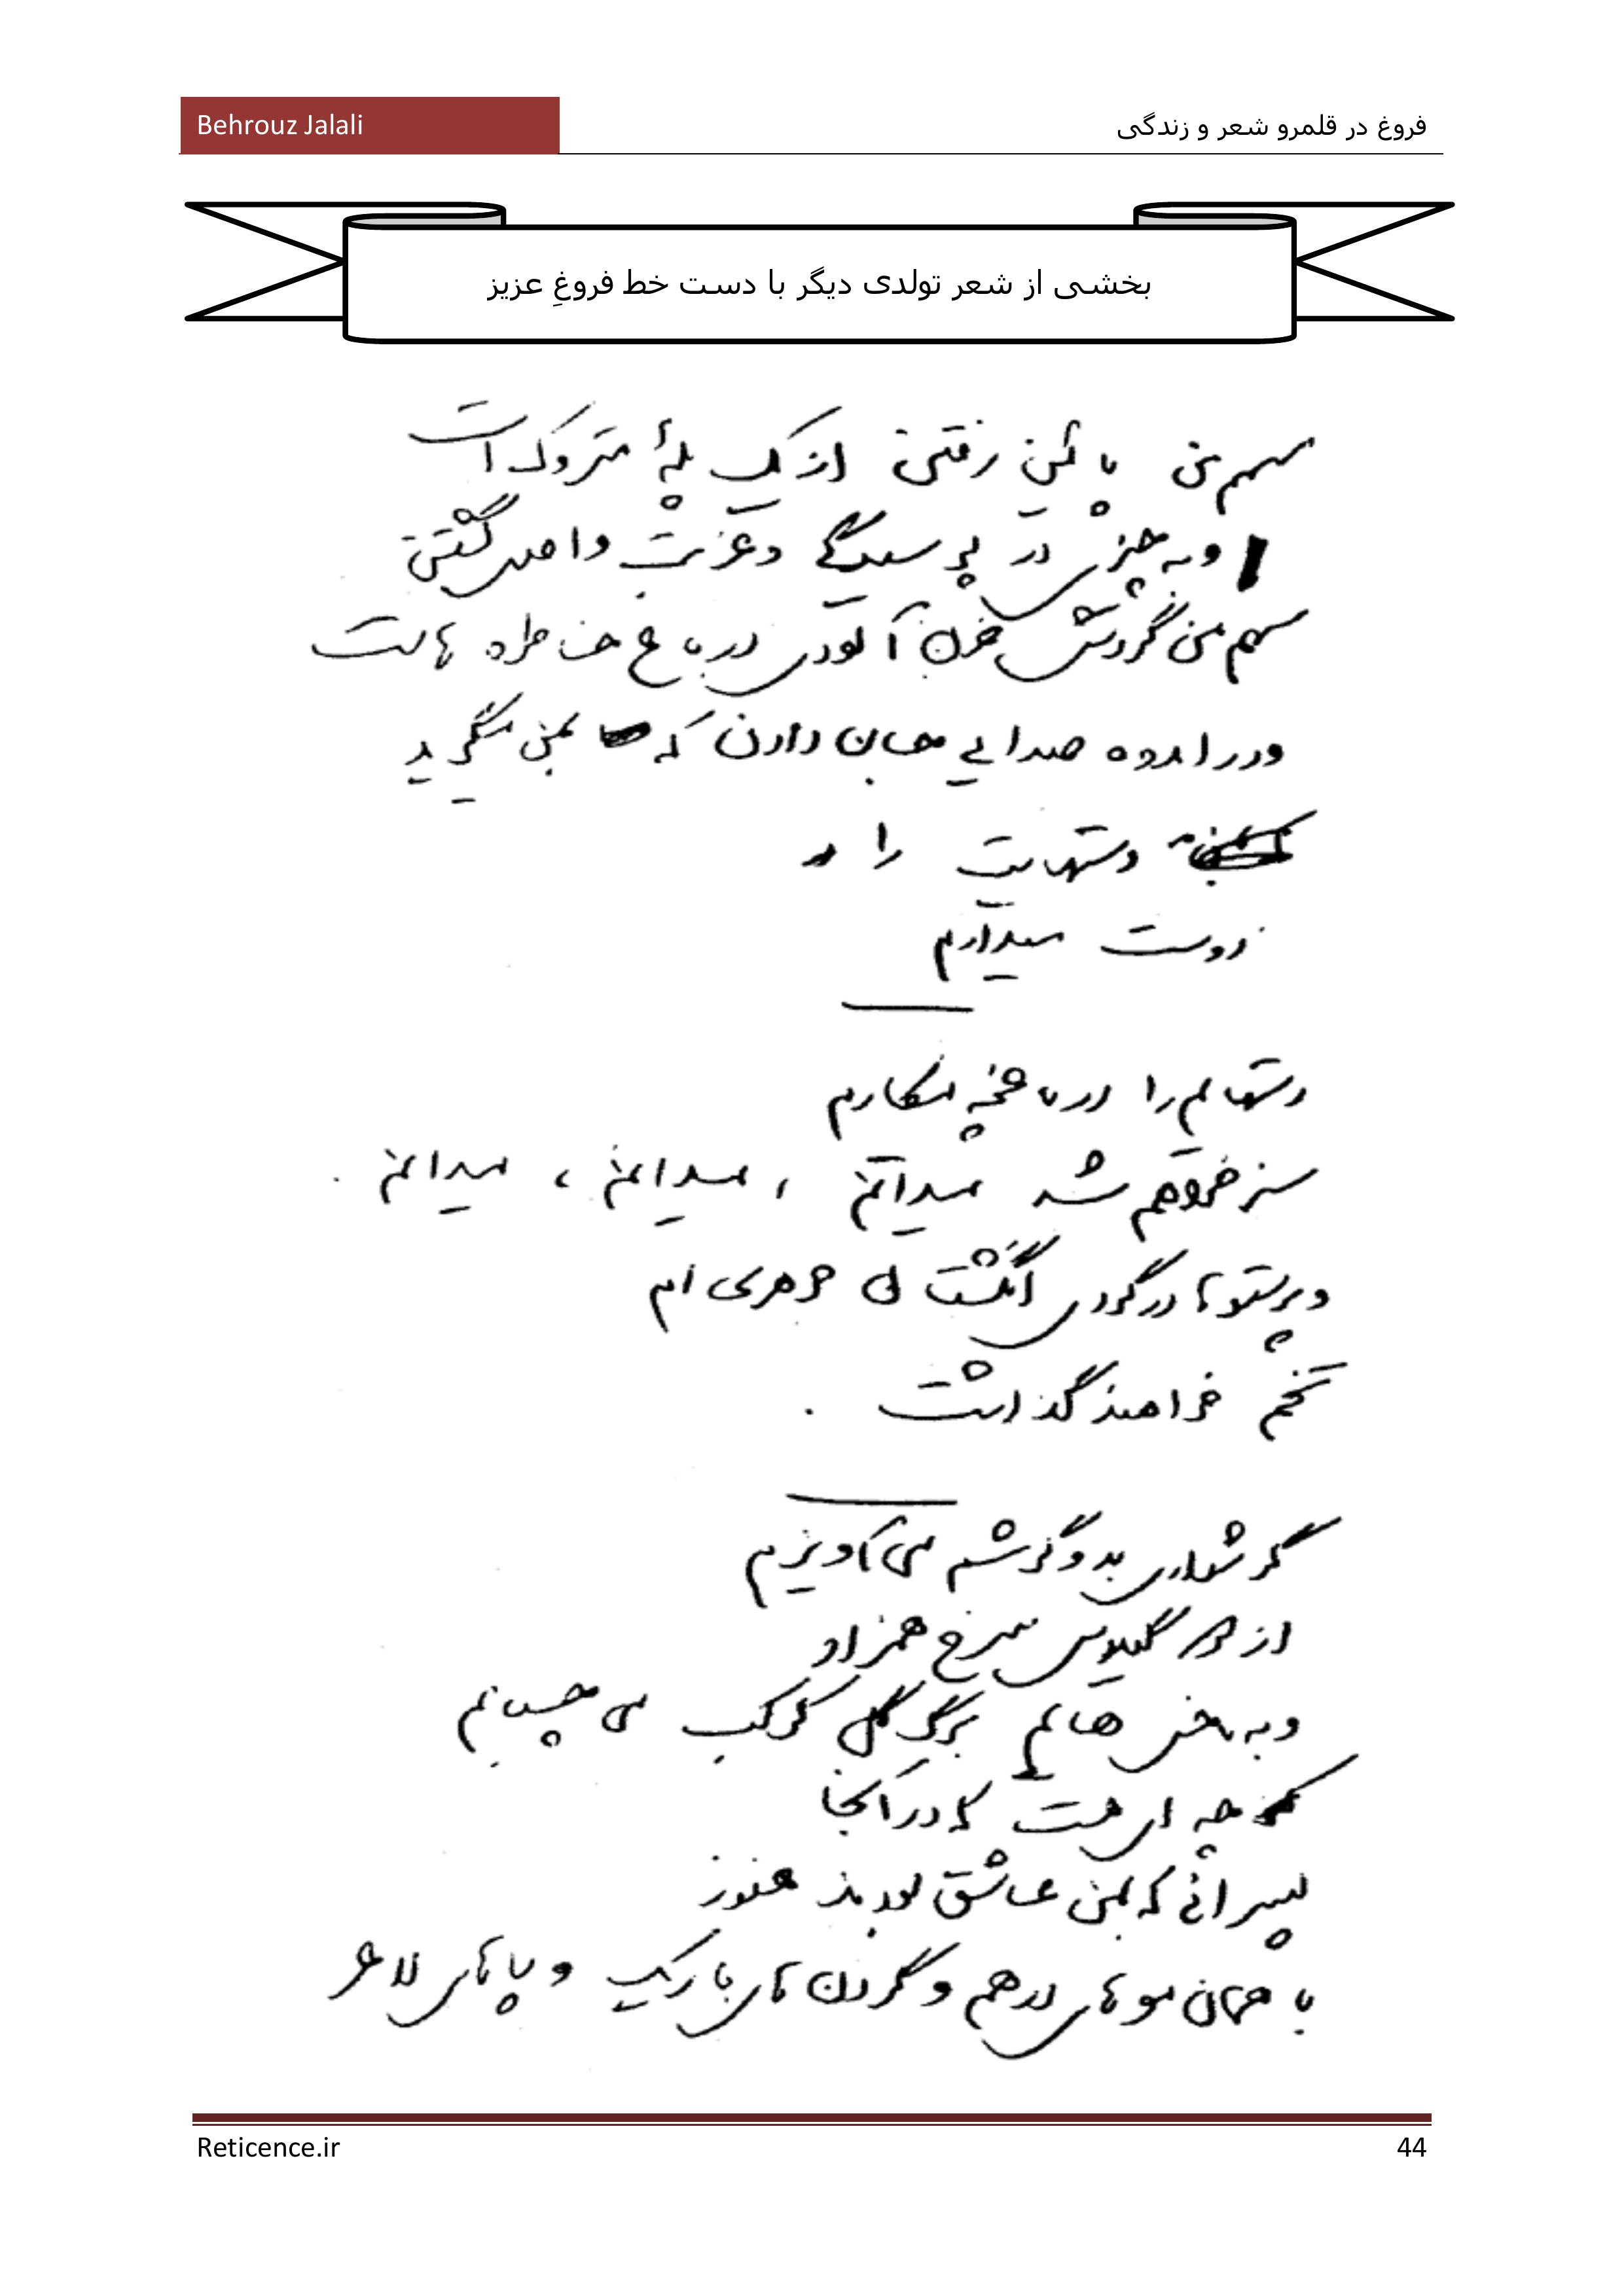 Behrouz Jalali
فروغ در قلمرو شعر و زندگی
بخشی از شعر تولدی دیگر با دست خط فروغِ عزیز
سهم من پائین رفتن از یک پلهٔ متروک است
و به چیزی در پوسیدگی و غربت واصل گشتن
سهم من گردش حزن آلودی در باغ خاطره هاست
و در اندوه صدایی جان دادن که بمن میگوید
دستهایت را
دوست میدارم
دستهایم را در باغچه میکارم
سبز خواهم شد میدانم ، میدانم ، میدانم .
و پرستوها در گودی انگشتان جوهری ام
تخم خواهند گذاشت .
گوشواری بدو گوشم می آویزم
از دو گیلاس سرخ همزاد
و به ناخن هایم برگ گل کوکب می چسبانم
کوچه ای هست که در آنجا
پسرانی که بمن عاشق بودند هنوز
با همان موهای درهم و گردن های باریک و پاهای لاغر
Reticence.ir
44